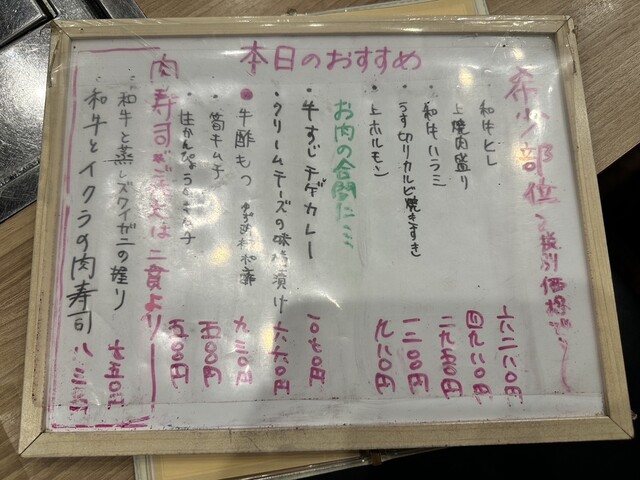 本日のおすすめ
希少部位
税別価格
和牛ヒレ
上焼肉盛り
四九八〇円
和牛ハラミ
二九五〇円
うす切りカルビ焼きすき
一二〇〇円
上ホルモン
九八〇円
お肉の合間に
牛すじチゲカレー
クリームチーズの味噌漬け
六六〇円
牛酢もつ
筍キムチ
五〇〇円
五〇〇円
肉寿司
ご注文は二貫より
和牛と蒸しズワイガニの握り
七五〇円
和牛とイクラの肉寿司